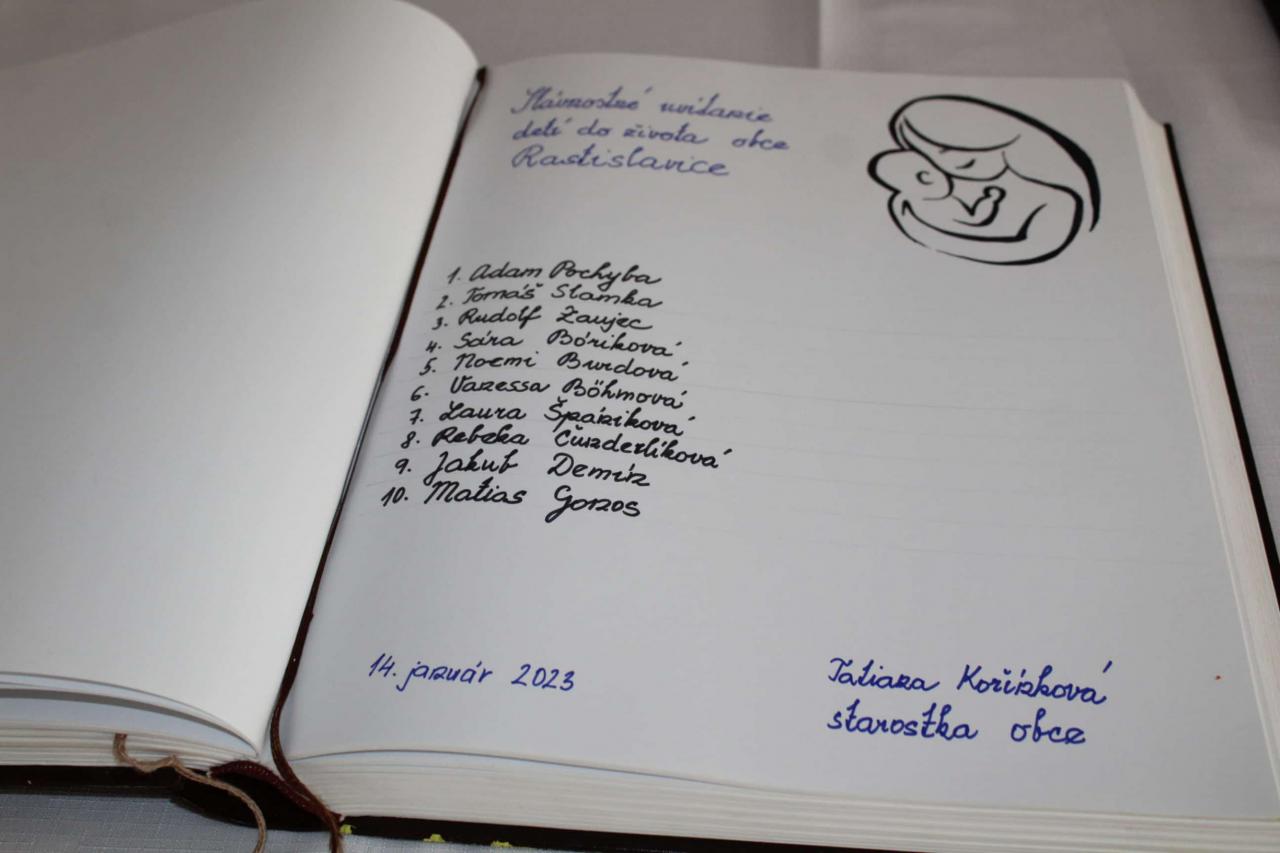 Slávnostné uvítanie
detí do života obce
Rastislavice
1. Adam Pochyba
2. Tomáš Slamka
3. Rudolf Žaujec
4. Sára Bóriková
5. Noemi Burdová
6. Vanessa Böhmová
7. Laura Špániková
8. Rebeka Čunderlíková
9. Jakub Demín
10. Matias Gonos
14. január 2023
Tatiana Kořínková
starostka obce